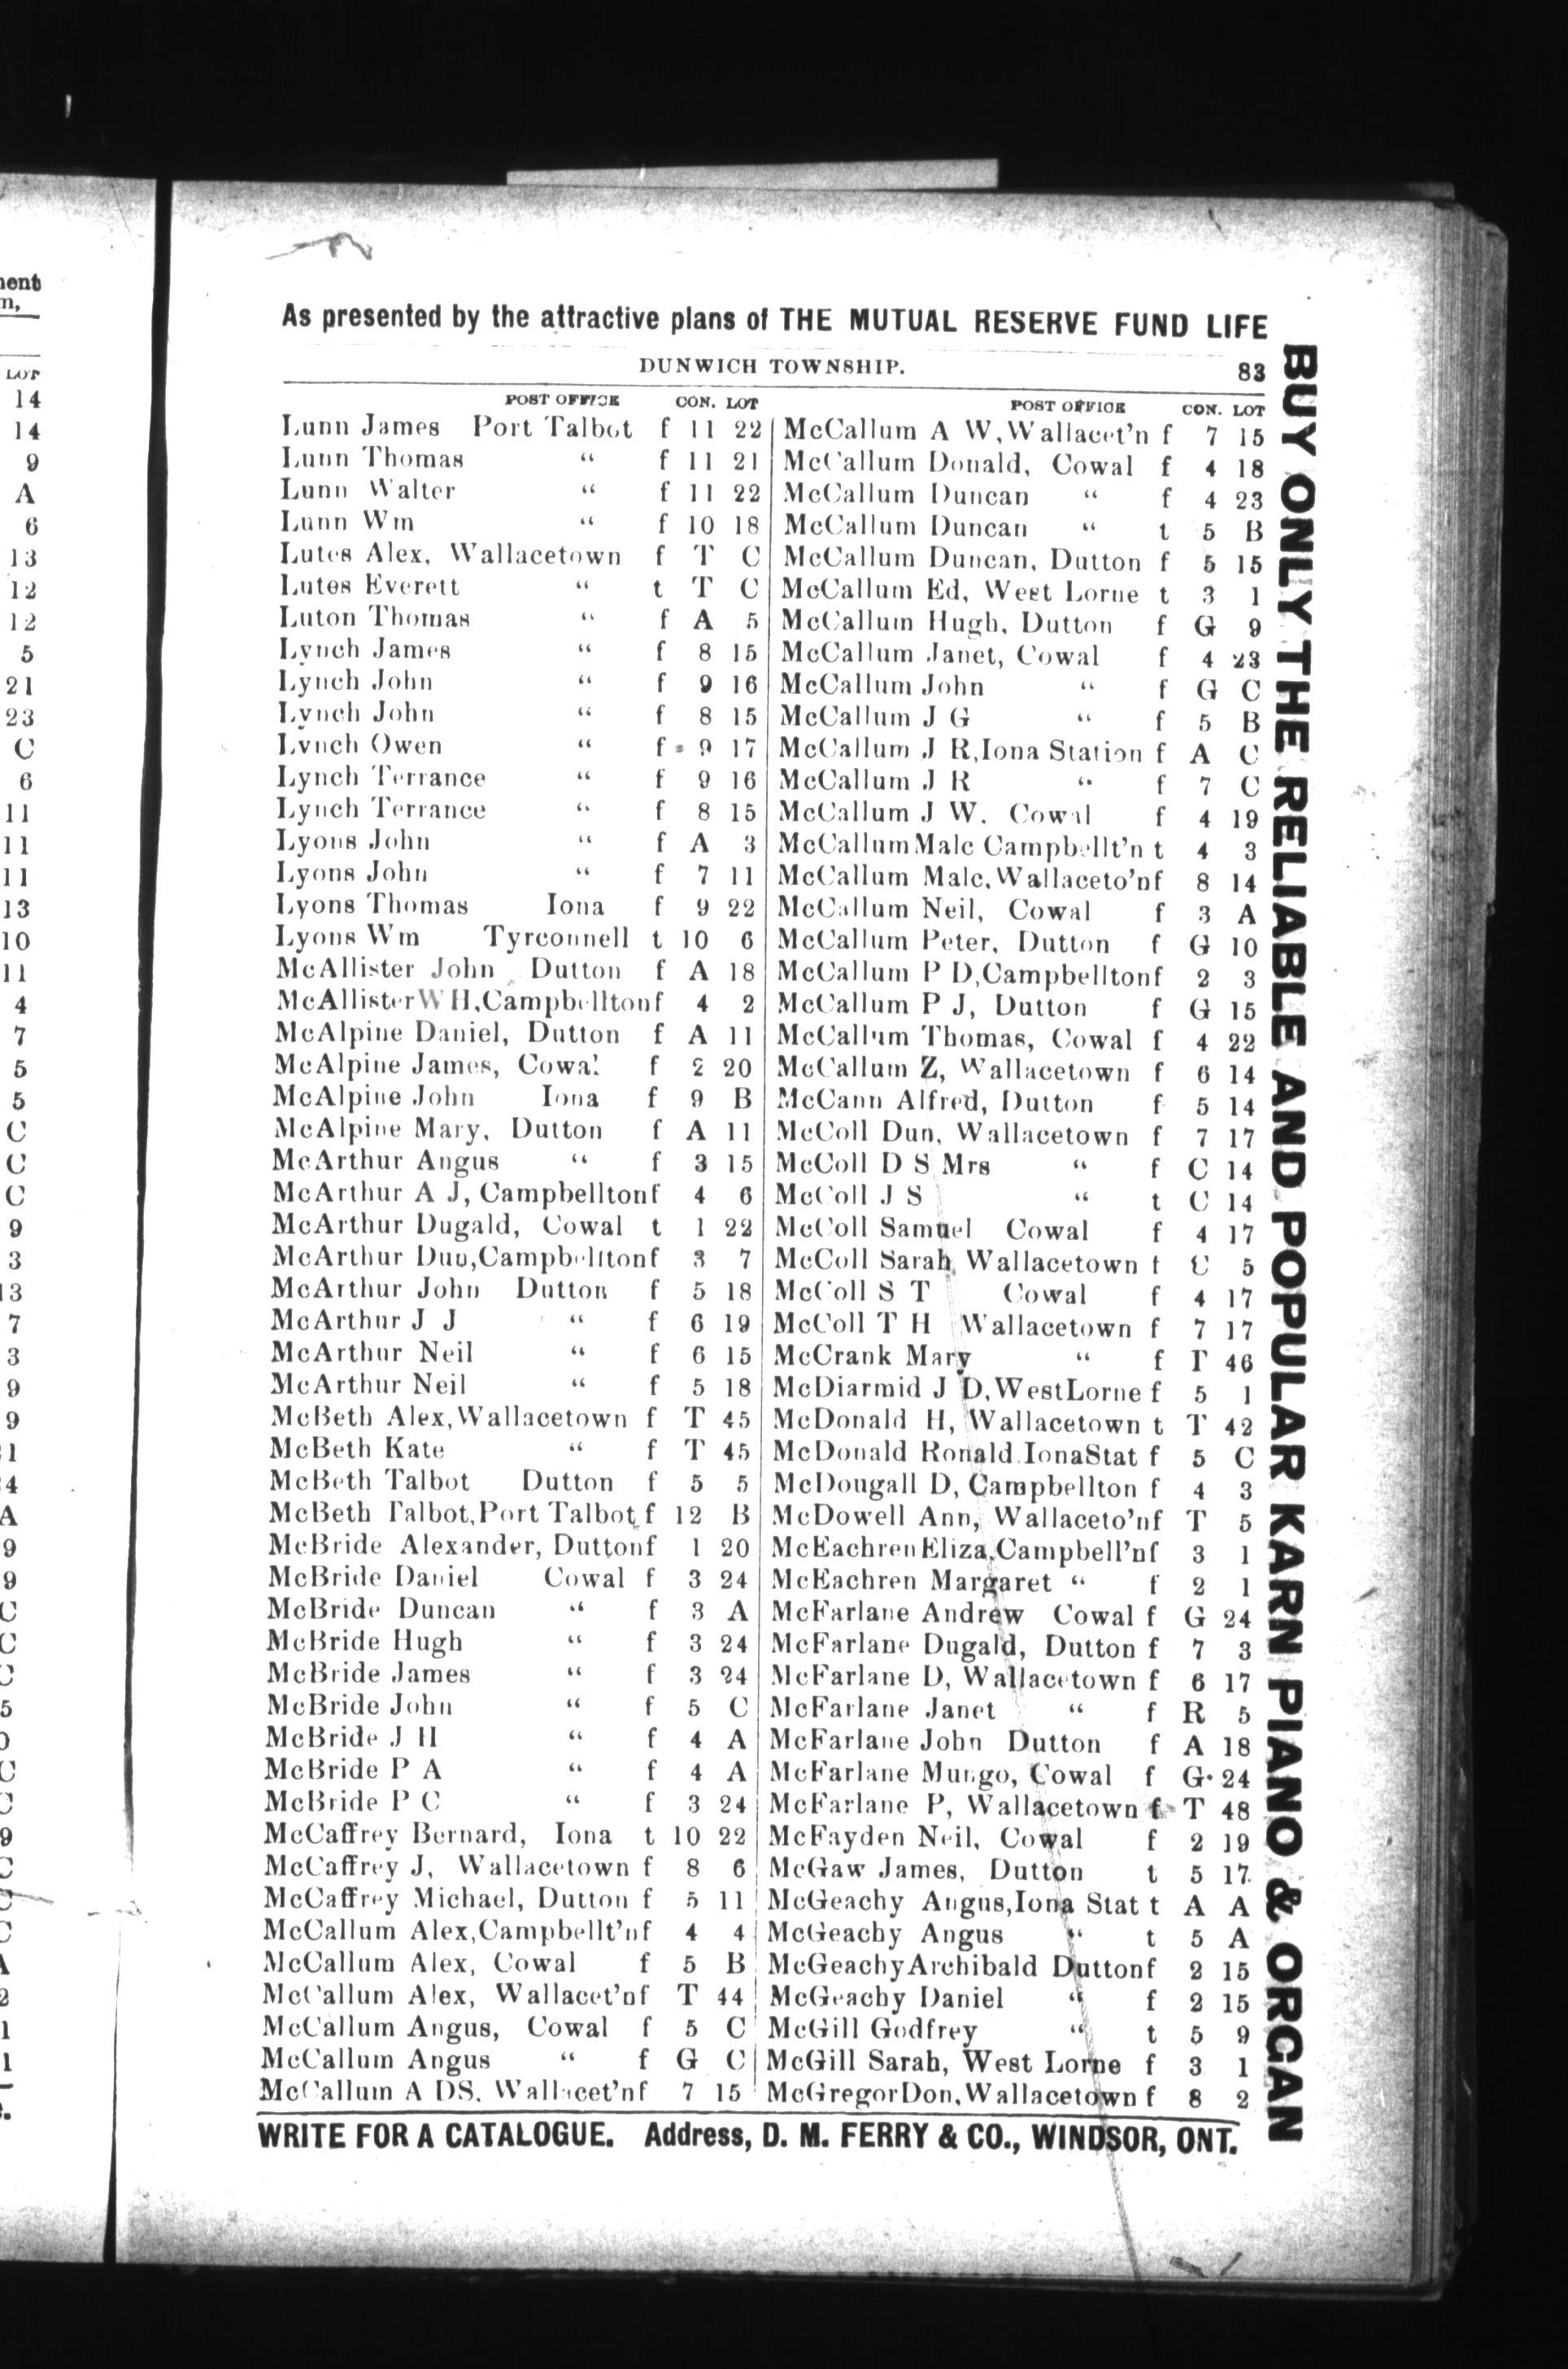 As presented by the attractive plans of THE MUTUAL RESERVE FUND LIFE
DUNWICH TOWNSHIP. 83
POST OFFICE CON. LOT
Lunn James Port Talbot f 11 22
Lunn Thomas “ f 11 21
Lunn Walter “ f 11 22
Lunn Wm “ f 10 18
Lutes Alex, Wallacetown f T C
Lutes Everett “ t T C
Luton Thomas “ f A 5
Lynch James “ f 8 15
Lynch John “ f 9 16
Lynch John “ f 8 15
Lynch Owen “ f 9 17
Lynch Terrance “ f 9 16
Lynch Terrance “ f 8 15
Lyons John “ f A 3
Lyons John “ f 7 11
Lyons Thomas Iona f 9 22
Lyons Wm Tyrconnell t 10 6
McAllister John Dutton f A 18
McAllister W H,Campbellton f 4 2
McAlpine Daniel, Dutton f A 11
McAlpine James, Cowal f 2 20
McAlpine John Iona f 9 B
McAlpine Mary, Dutton f A 11
McArthur Angus “ f 3 15
McArthur A J, Campbellton f 4 6
McArthur Dugald, Cowal t 1 22
McArthur Dun,Campbellton f 3 7
McArthur John Dutton f 5 18
McArthur J J “ f 6 19
McArthur Neil “ f 6 15
McArthur Neil “ f 5 18
McBeth Alex,Wallacetown f T 45
McBeth Kate “ f T 45
McBeth Talbot Dutton f 5 5
McBeth Talbot,Port Talbot f 12 B
McBride Alexander, Dutton f 1 20
McBride Daniel Cowal f 3 24
McBride Duncan “ f 3 A
McBride Hugh “ f 3 24
McBride James “ f 3 24
McBride John “ f 5 C
McBride J H “ f 4 A
McBride P A “ f 4 A
McBride P C “ f 3 24
McCaffrey Bernard, Iona t 10 22
McCaffrey J, Wallacetown f 8 6
McCaffrey Michael, Dutton f 5 11
McCallum Alex,Campbellt'n f 4 4
McCallum Alex, Cowal f 5 B
McCallum Alex, Wallacet'n f T 44
McCallum Angus, Cowal f 5 C
McCallum Angus “ f G C
McCallum A DS, Wallacet'n f 7 15
POST OFFICE CON. LOT
McCallum A W,Wallacet'n f 7 15
McCallum Donald, Cowal f 4 18
McCallum Duncan “ f 4 23
McCallum Duncan “ t 5 B
McCallum Duncan, Dutton f 5 15
McCallum Ed, West Lorne t 3 1
McCallum Hugh, Dutton f G 9
McCallum Janet, Cowal f 4 23
McCallum John “ f G C
McCallum J G “ f 5 B
McCallum J R,Iona Station f A C
McCallum J R “ f 7 C
McCallum J W. Cowal f 4 19
McCallum Malc Campbellt'n t 4 3
McCallum Malc,Wallaceto'n f 8 14
McCallum Neil, Cowal f 3 A
McCallum Peter, Dutton f G 10
McCallum P D,Campbellton f 2 3
McCallum P J, Dutton f G 15
McCallum Thomas, Cowal f 4 22
McCallum Z, Wallacetown f 6 14
McCann Alfred, Dutton f 5 14
McColl Dun, Wallacetown f 7 17
McColl D S Mrs “ f C 14
McColl J S “ t C 14
McColl Samuel Cowal f 4 17
McColl Sarah Wallacetown t C 5
McColl S T Cowal f 4 17
McColl T H Wallacetown f 7 17
McCrank Mary “ f T 46
McDiarmid J D,WestLorne f 5 1
McDonald H, Wallacetown t T 42
McDonald Ronald.IonaStat f 5 C
McDougall D, Campbellton f 4 3
McDowell Ann, Wallaceto'n f T 5
McEachren Eliza,Campbell'n f 3 1
McEachren Margaret “ f 2 1
McFarlane Andrew Cowal f G 24
McFarlane Dugald, Dutton f 7 3
McFarlane D, Wallacetown f 6 17
McFarlane Janet “ f R 5
McFarlane John Dutton f A 18
McFarlane Mungo, Cowal f G 24
McFarlane P, Wallacetown f T 48
McFayden Neil, Cowal f 2 19
McGaw James, Dutton t 5 17
McGeachy Angus,Iona Stat t A A
McGeachy Angus “ t 5 A
McGeachy Archibald Dutton f 2 15
McGeachy Daniel “ f 2 15
McGill Godfrey “ t 5 9
McGill Sarah, West Lorne f 3 1
McGregor Don,Wallacetown f 8 2
WRITE FOR A CATALOGUE. Address, D. M. FERRY & CO., WINDSOR, ONT.
BUY ONLY THE RELIABLE AND POPULAR KARN PIANO & ORGAN